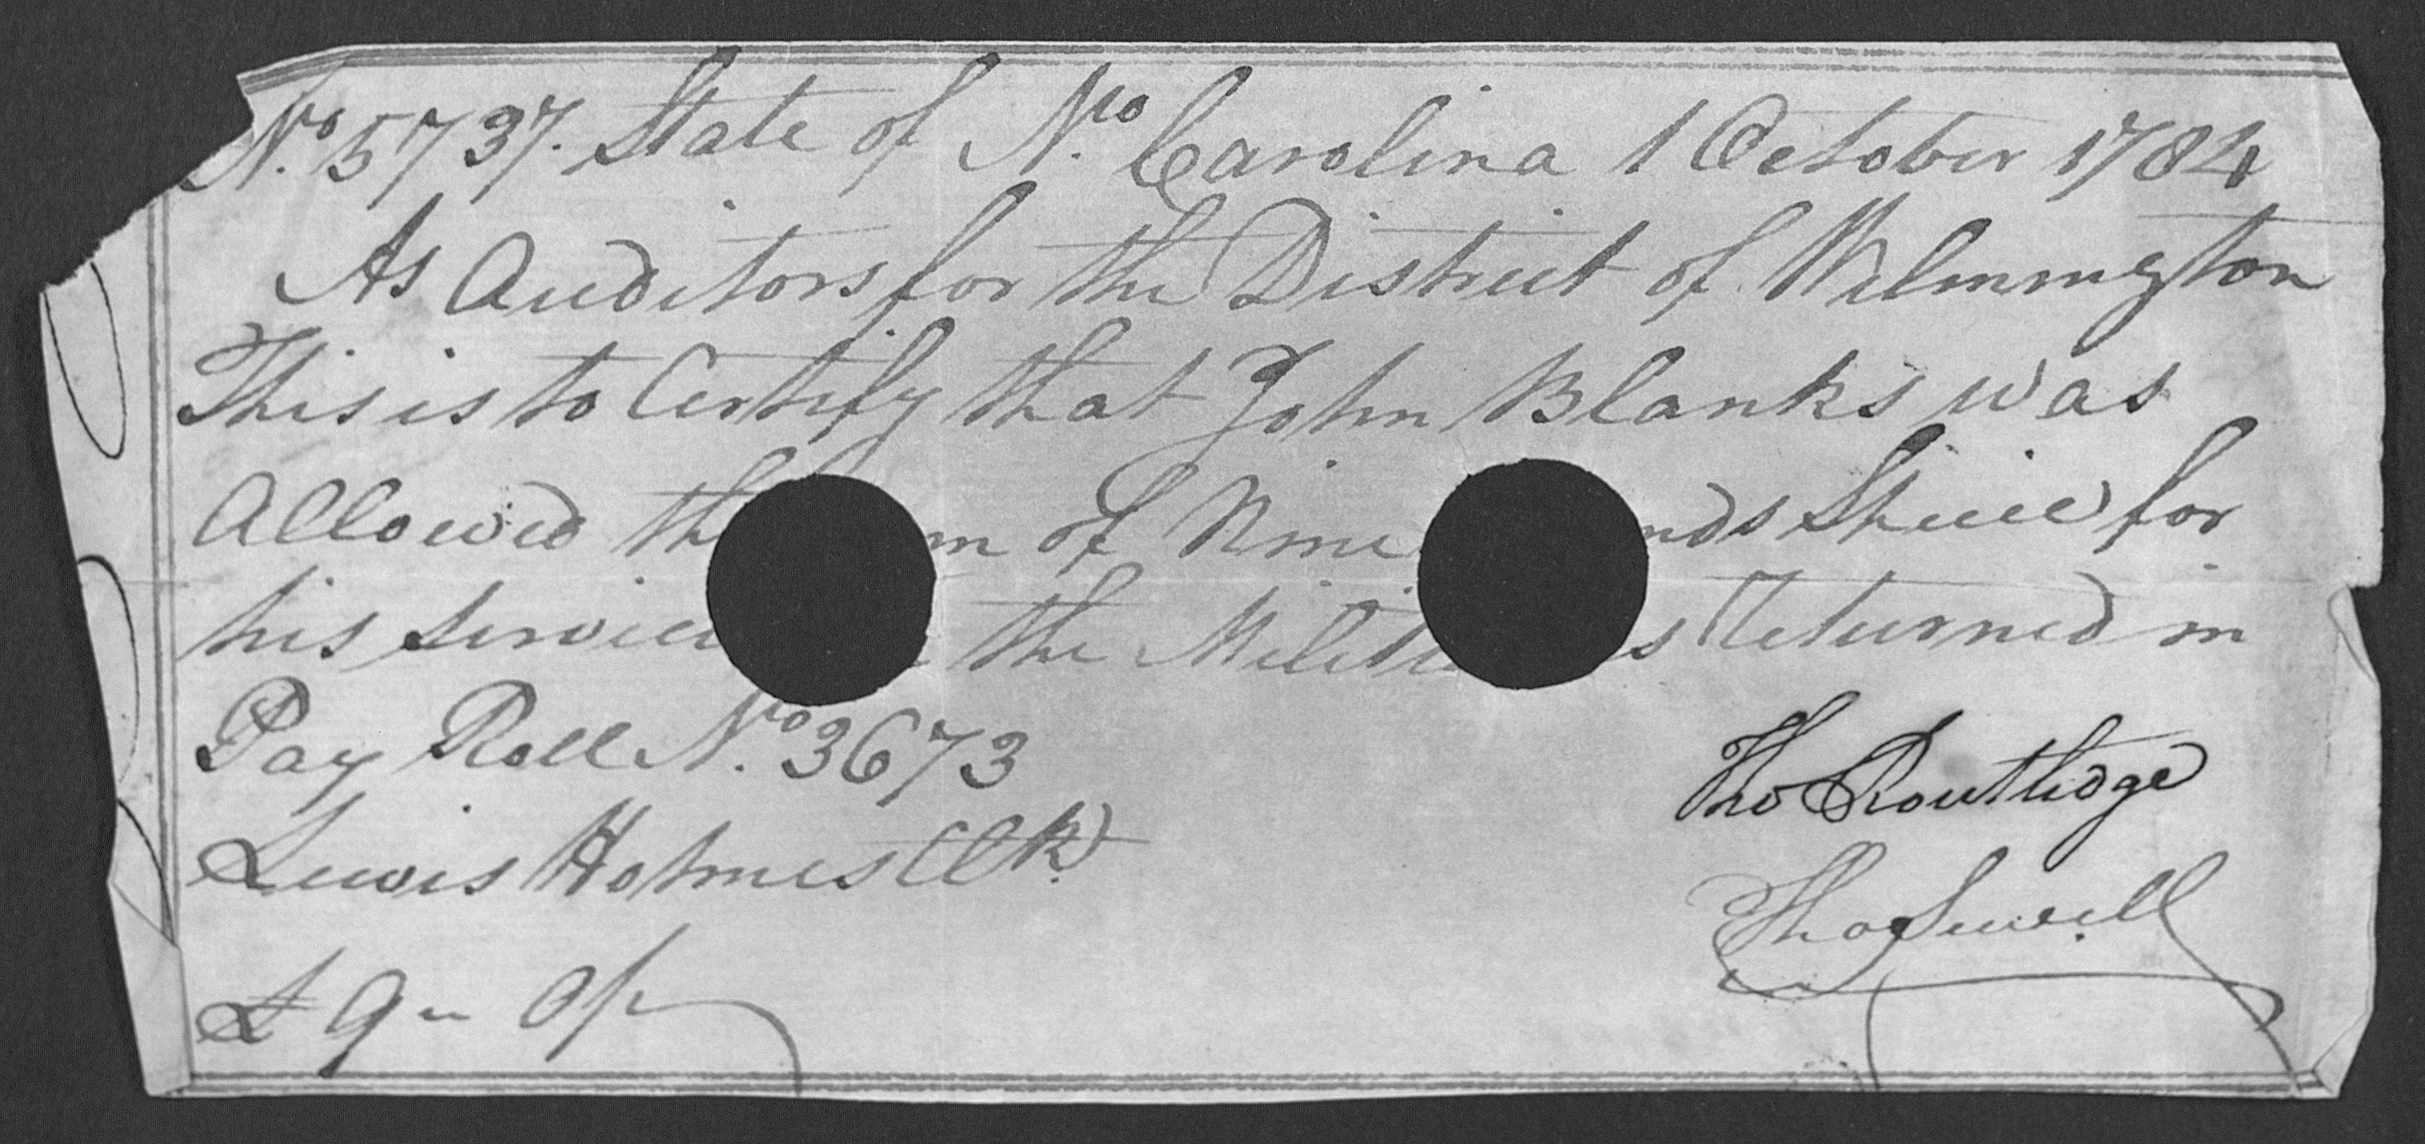 No. 5737. State of No. Carolina 1 October 1784
As Auditors for the District of Wilmington
This is to Certify that John Blanks was
Allowed th m of Nine nds Specie for
his Service the Militi s Returned in
Pay Roll No. 3673
Lewis Holmes Clk
Tho Routledge
Tho Sewell
£ 9 " 0/